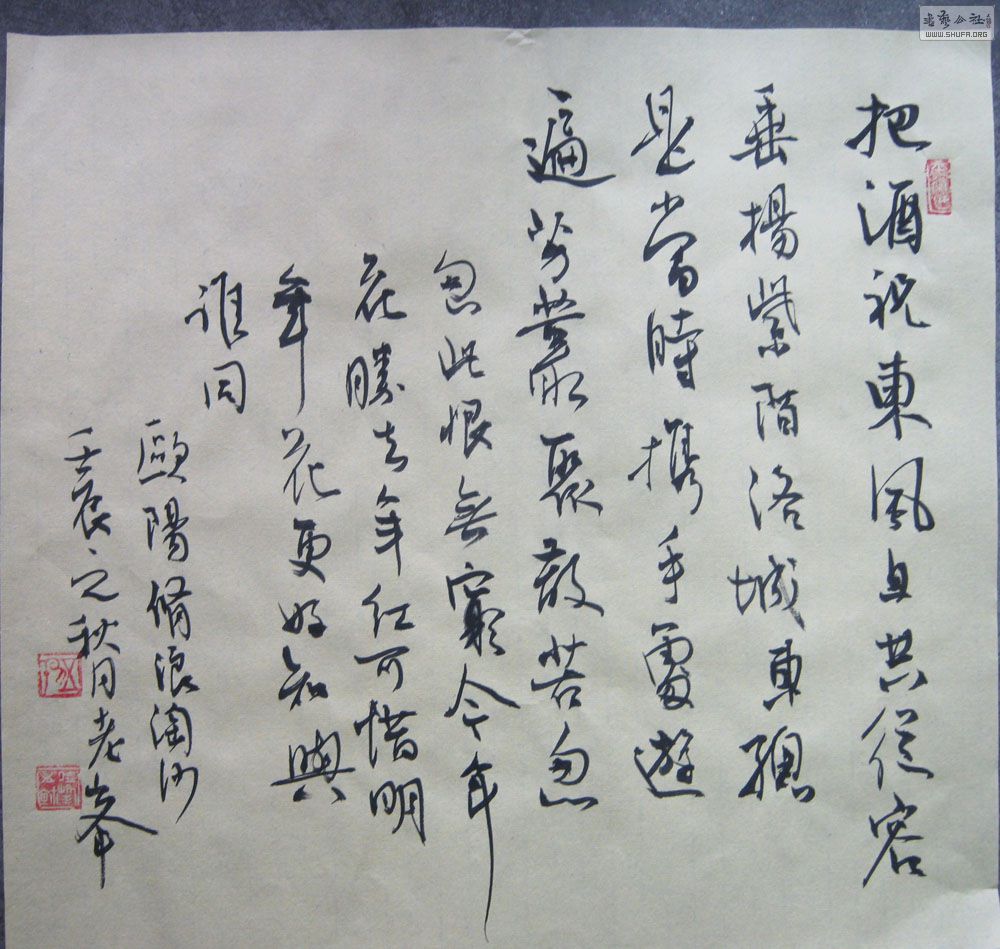 把酒祝東風且共從容
垂楊紫陌洛城東總
是當時携手處遊
遍芳叢聚散苦匆
匆此恨無窮今年
花勝去年紅可惜明
年花更好知與
誰同
歐陽脩浪淘沙
壬辰之秋月老峯
WWW.SHUFA.ORG